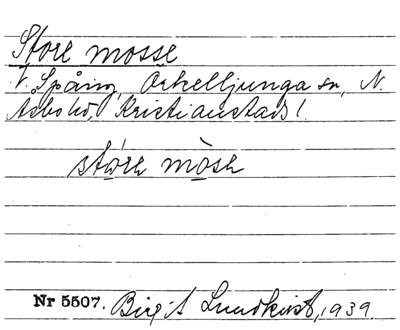 Store mosse
V. Spång, Örkelljunga sn, N.
Åsbo hd, Kristianstads l.
støre mòse
Nr 5507. Birgit Lundkvist, 1939.